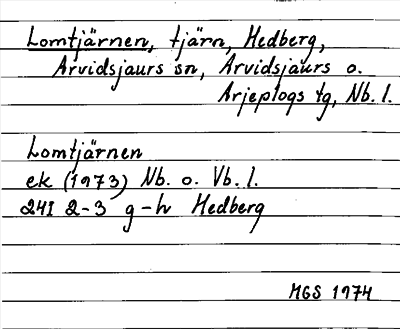 Lomtjärnen, tjärn, Hedberg,
Arvidsjaurs sn, Arvidsjaurs o.
Arjeplogs tg, Nb. l.
Lomtjärnen
ek (1973) Nb. o. Vb. l.
24I 2-3 g-h Hedberg
MGS 1974